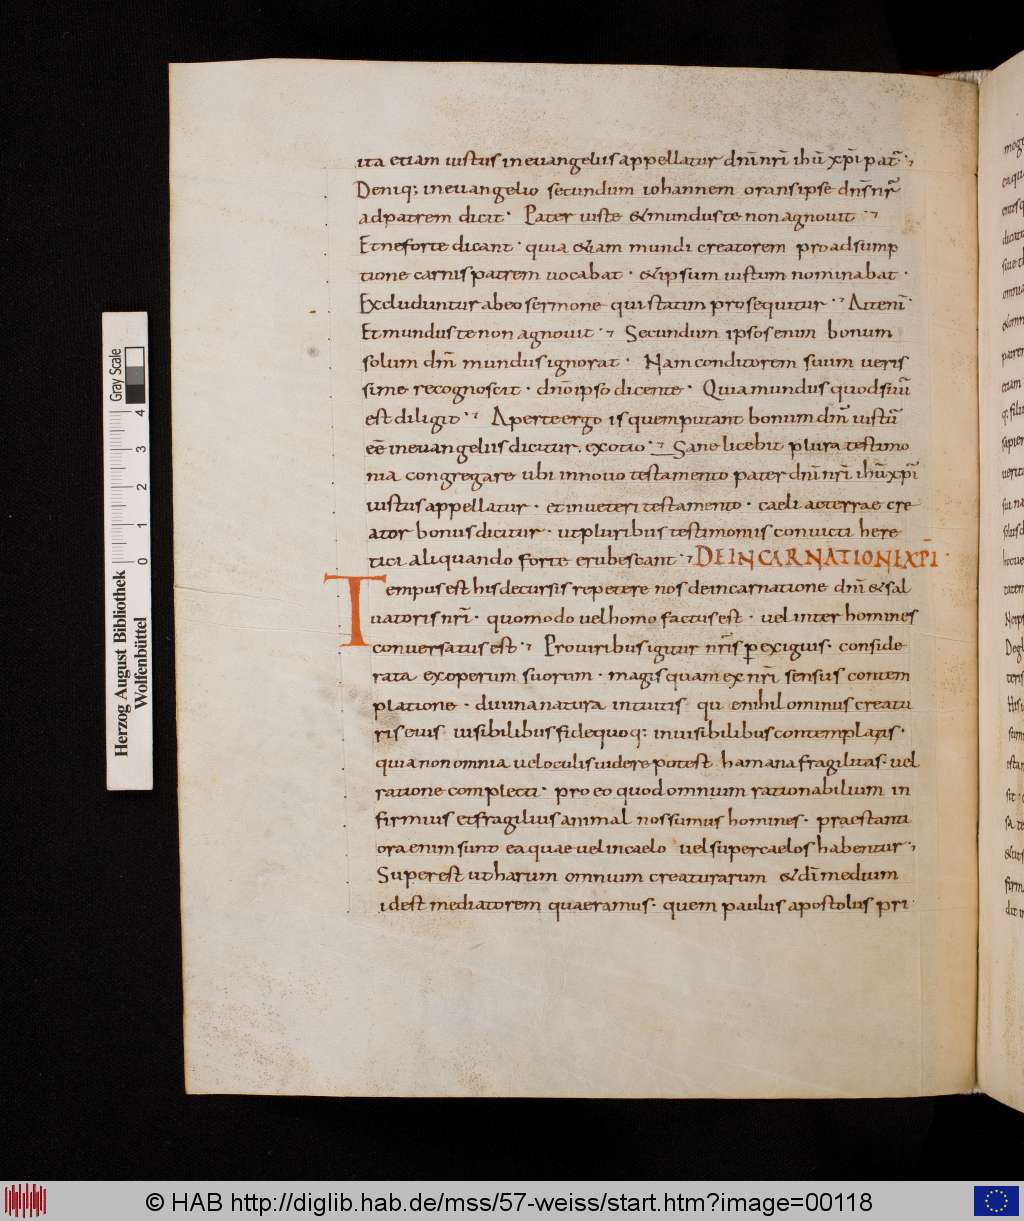 ita etiam iustus in euangeliis appellatur dñi nr̄i ihũ xp̄i pat̃
Deniq; in euangelio secundum iohannem orans ipse dñs nr̃
ad patrem dicit · Pater iuste & mundus te non agnouit
Et ne forte dicant · quia & iam mundi creatorem pro adsump
tione carnis patrem uocabat · & ipsum iustum nominabat ·
Excluduntur ab eo sermone qui statim prosequitur · Ait enĩ ·
Et mundus te non agnouit · Secundum ipsos enim bonum
solum dm̃ mundus ignorat · Nam conditorem suum ueris
sime recognoscit · dño ipso dicente · Quia mundus quod suũ
est diligit · Aperte ergo is quem putant bonum dm̃ iustũ
eē in euangeliis dicitur, ex otio · Sane licebit plura testimo
nia congregare ubi in nouo testamento pater dñi nr̄i ihũ xp̄i
iustus appellatur · et in ueteri testamento · caeli ac terrae cre
ator bonus dicitur · ut pluribus testimoniis conuicti here
tici aliquando forte erubescant · DE INCARNATIONE XP̄I ·
Tempus est his decursis repetere nos de incarnatione dñi & sal
uatoris nr̄i · quomodo uel homo factus est · uel inter homines
conuersatus est · Pro uiribus igitur nr̄is p exiguis · conside
rata ex operum suorum · magis quam ex nr̄i sensus contem
platione · diuina natura intuitis qu enihilominus creatu
ris eius uisibilibus fide quoq: inuisibilibus contemplatis ·
quia non omnia uel oculis uidere potest hamana fragilitas · uel
ratione complecti · pro eo quod omnium rationabilium in
firmius et fragilius animal nos sumus homines · praestanti
ora enim sunt ea quae uel in caelo uel super caelos habentur
Superest ut harum omnium creaturarum & dī medium
id est mediatorem quaeramus · quem paulus apostolus pri
Herzog August Bibliothek
Wolfenbüttel
Gray Scale
0 1 2 3 4
© HAB http://diglib.hab.de/mss/57-weiss/start.htm?image=00118